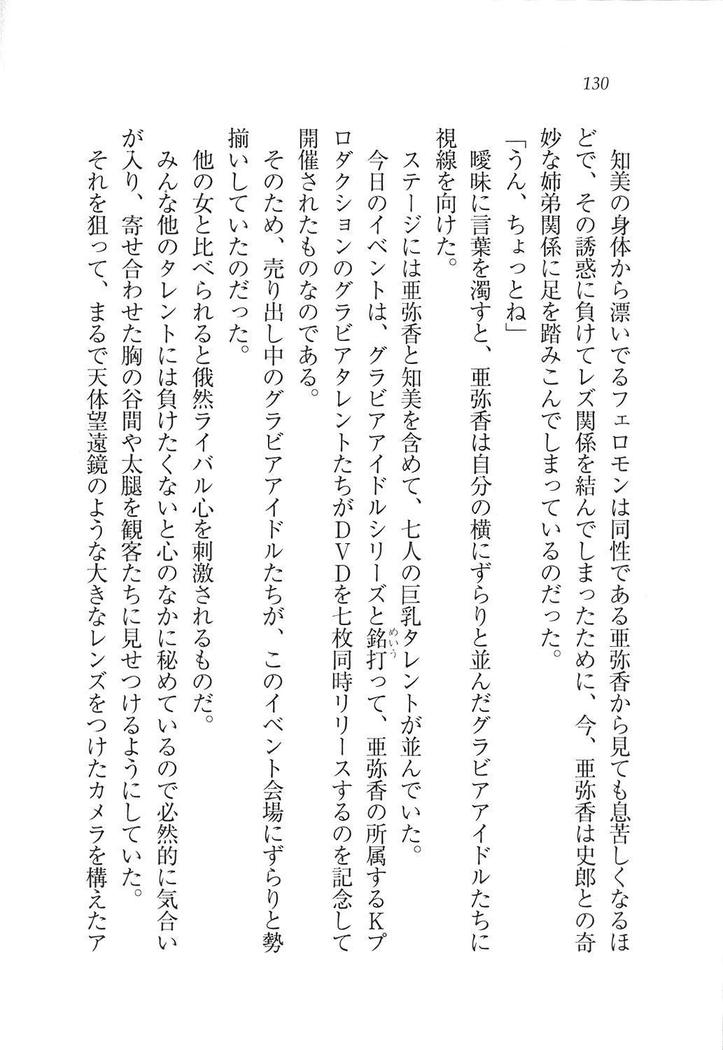 130
知美の身体から漂いでるフェロモンは同性である亜弥香から見ても息苦しくなるほ
どで、その誘惑に負けてレズ関係を結んでしまったために、今、亜弥香は史郎との奇
妙な姉弟関係に足を踏みこんでしまっているのだった。
「うん、ちょっとね」
曖昧に言葉を濁すと、亜弥香は自分の横にずらりと並んだグラビアアイドルたちに
視線を向けた。
ステージには亜弥香と知美を含めて、七人の巨乳タレントが並んでいた。
今日のイベントは、グラビアアイドルシリーズと銘打って、亜弥香の所属するKプ
めいう
ロダクションのグラビアタレントたちがDVDを七枚同時リリースするのを記念して
開催されたものなのである。
そのため、売り出し中のグラビアアイドルたちが、このイベント会場にずらりと勢
揃いしていたのだった。
他の女と比べられると俄然ライバル心を刺激されるものだ。
みんな他のタレントには負けたくないと心のなかに秘めているので必然的に気合い
が入り、寄せ合わせた胸の谷間や太腿を観客たちに見せつけるようにしていた。
それを狙って、まるで天体望遠鏡のような大きなレンズをつけたカメラを構えたア